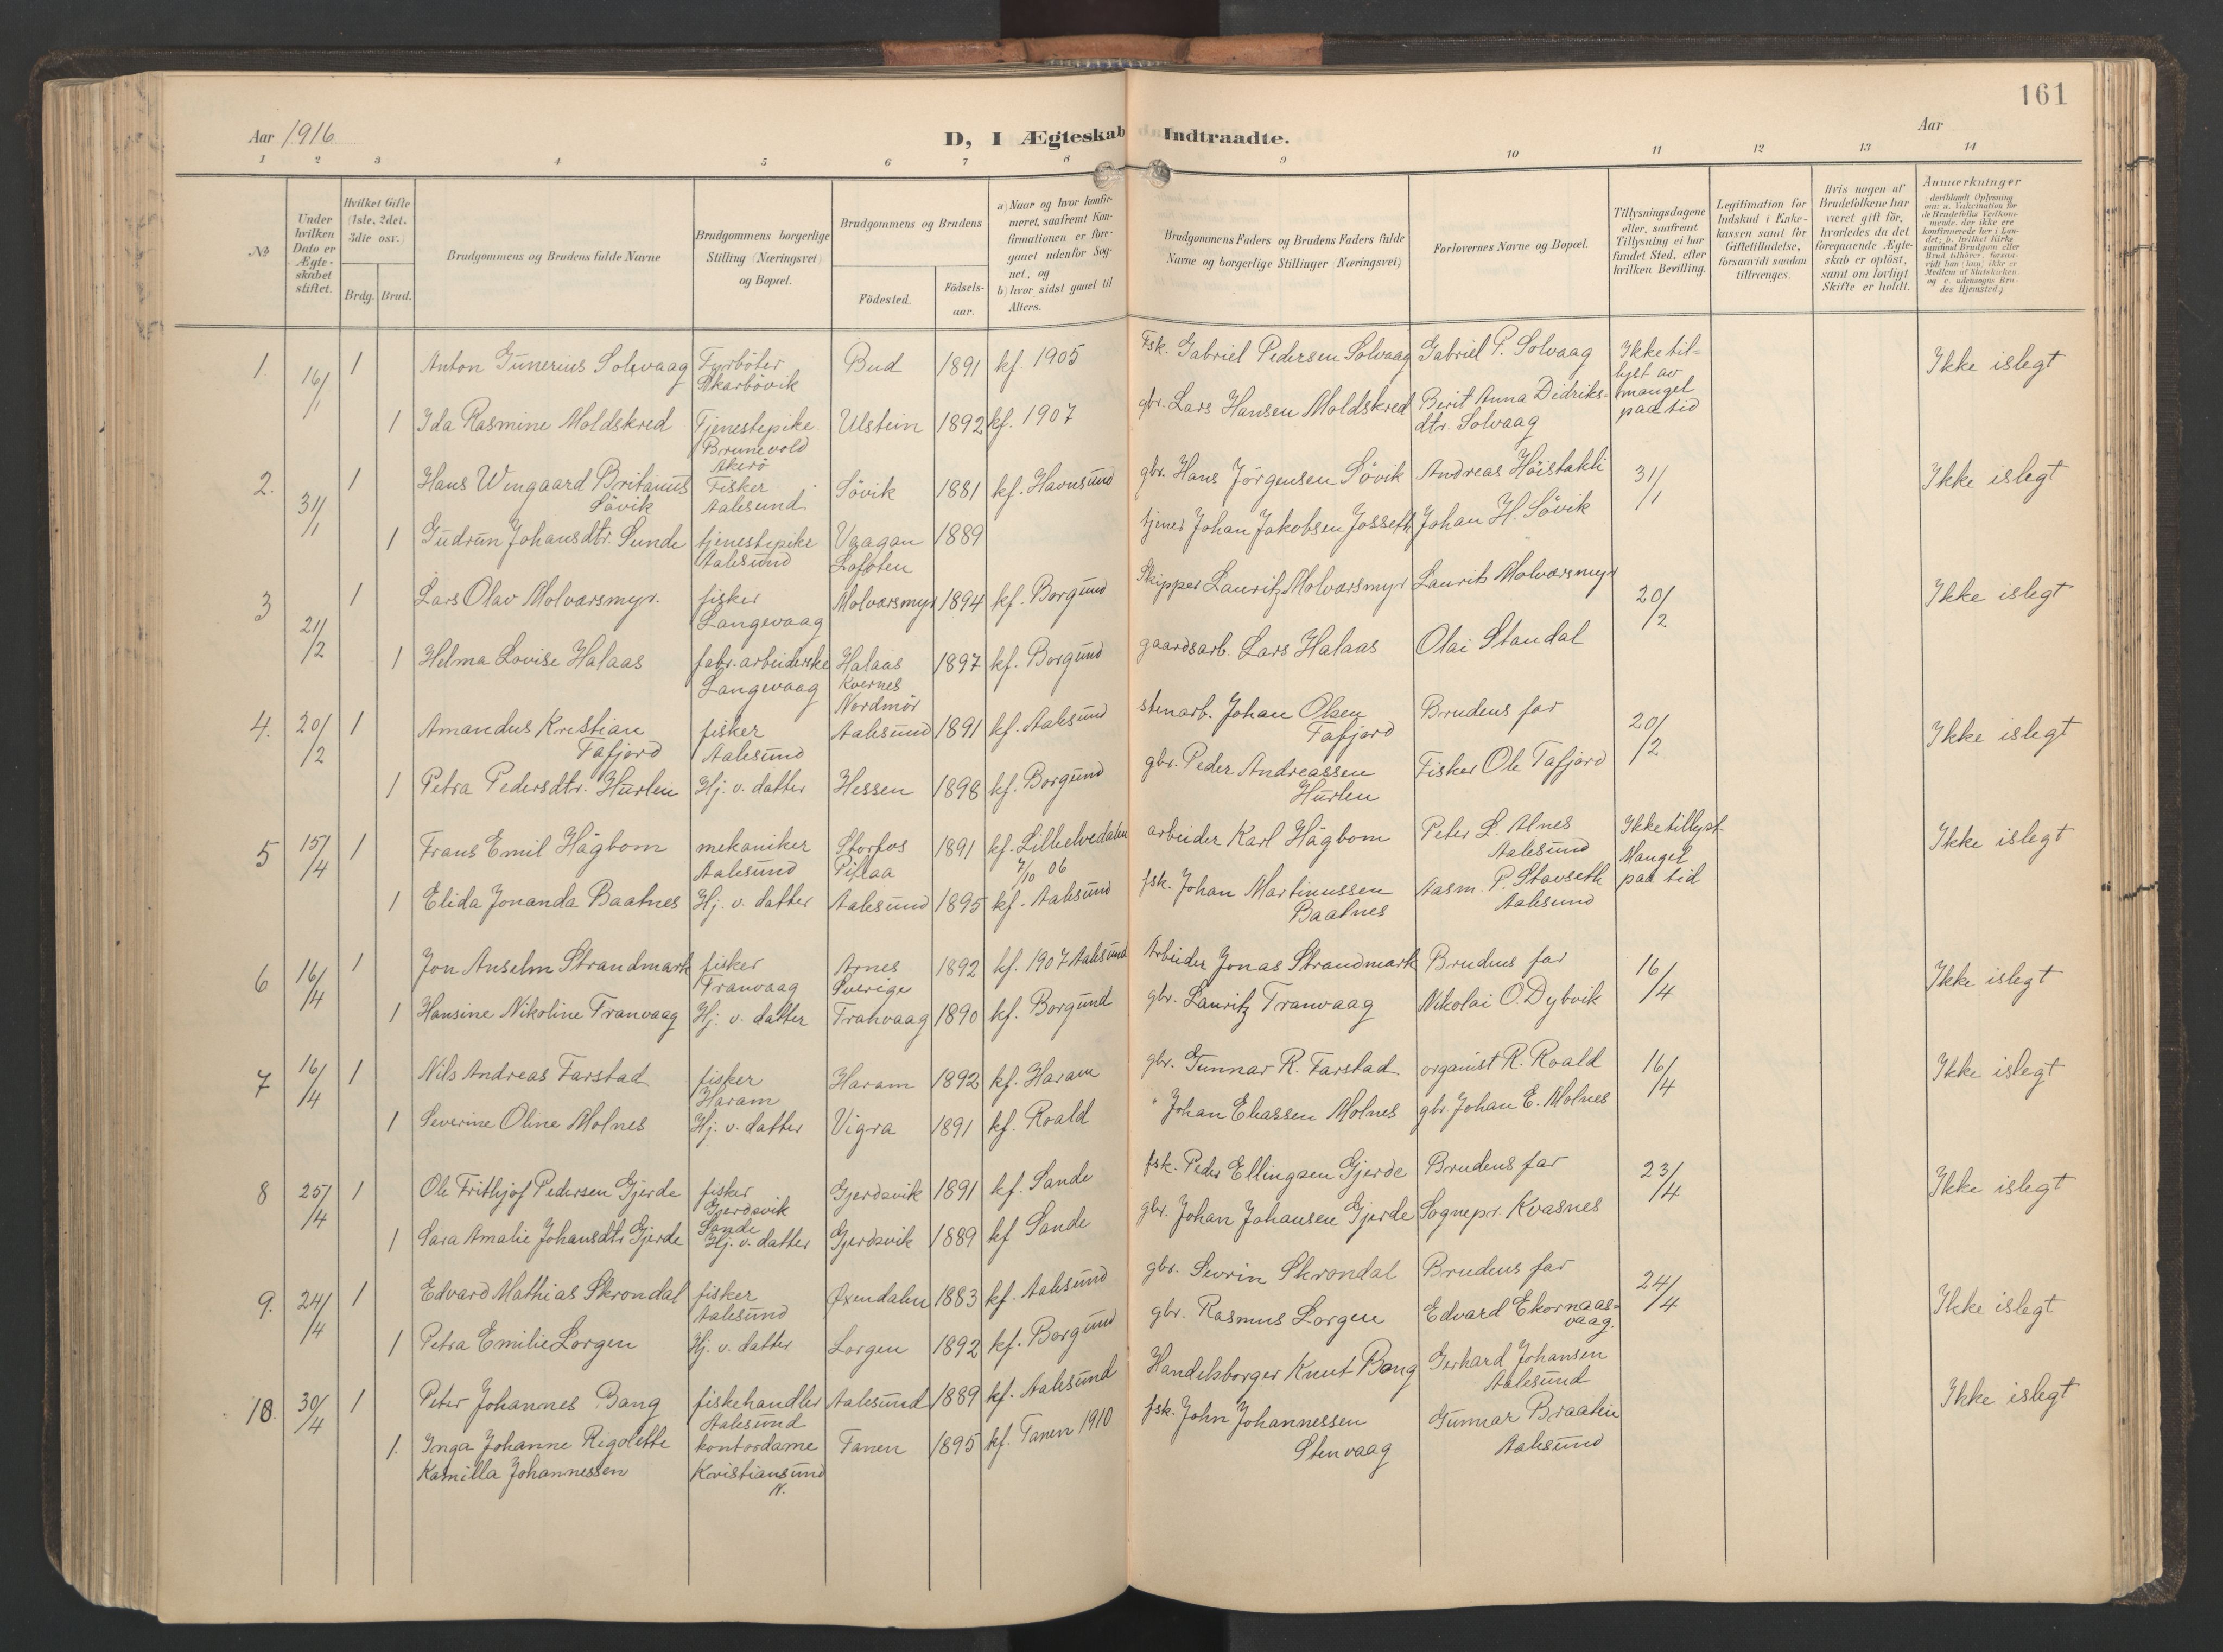 161
Aar 1916
D, I Ægteskab Indtraadte.
Aar
1 2 3 4 5 6 7 8 9 10 11 12 13 14
No
Under hvilken Dato er Ægteskabet stiftet.
Hvilket Gifte (1ste, 2det, 3die osv.)
Brdg. Brud.
Brudgommens og Brudens fulde Navne
Brudgommens borgerlige Stilling (Næringsvei) og Bopæl.
Brudgommens og Brudens
Födested.
Födselsaar.
a) Naar og hvor konfirmeret, saafremt Konfirmationen er foregaaet udenfor Sognet, og
b) hvor sidst gaaet til Alters.
Brudgommens Faders og Brudens Faders fulde Navne og borgerlige Stillinger (Næringsvei)
Forlovernes Navne og Bopæl.
Tillysningsdagene eller, saafremt Tillysning ei har fundet Sted, efter hvilken Bevilling.
Legitimation for Indskud i Enkekassen samt for Giftetilladelse, forsaavidt saadan tiltrænges.
Hvis nogen af Brudefolkene har været gift för, hvorledes da det foregaaende Ægteskab er oplöst, samt om lovligt Skifte er holdt.
Anmerkninger
(deriblandt Oplysning om: a. Vakcination for de Brudefolks Vedkommende, der ikke ere konfirmerede her i Landet; b. hvilket Kirkesamfund Brudgom eller Brud tilhörer, forsaavidt han (hun) ikke er Medlem af Statskirken og c. udensogns Brudes Hjemsted.)
1. 16/1 1 Anton Gunerius Solevaag Fyrböter Skarbövik Bud 1891 kf. 1905 Fsk. Gabriel Pedersen Solvaag Gabriel P. Solvaag Ikke tillyst av mangel paa tid Ikke islegt
1 Ida Rasmine Moldskred Tjenestepike Brunevold Akerö Ulstein 1892 kf. 1907 gbr. Lars Hansen Moldskred Berit Anna Didriksdtr. Solvaag
2. 31/1 1 Hans Wingaard Britanus Sövik Fisker Aalesund Sövik 1881 kf. Havnsund gbr. Hans Jörgensen Sövik Andreas Höistakli 31/1 Ikke islegt
1 Gudrun Johansdtr. Sunde tjenestepike Aalesund Vaagan Lofoten 1889 tjener Johan Jakobsen Josseth Johan H. Sövik
3 21/2 1 Lars Olav Molværsmyr. fisker Langevaag Molværsmyr 1894 kf. Borgund Skipper Lauritz Molværsmyr Laurits Molværsmyr 20/2 Ikke islegt
1 Helma Lovise Halaas fabr. arbeiderske Langevaag Halaas Kvernes Nordmör 1897 kf. Borgund gaardsarb. Lars Halaas Olai Standal
4. 20/2 1 Amandus Kristian Tafjord fisker Aalesund Aalesund 1891 kf. Aalesund stenarb. Johan Olsen Tafjord Brudens far 20/2 Ikke islegt
1 Petra Pedersdtr. Hurlen Hj. v. datter Hessen 1898 kf. Borgund gbr. Peder Andreassen Hurlen Fisker Ole Tafjord
5 15/4 1 Frans Emil Hägbom mekaniker Aalesund Storfos Pitlaa 1891 kf. 7/10 06 arbeider Karl Hägbom Peter L. Alnes Aalesund Ikke tillyst Mangel paa tid Ikke islegt
1 Elida Jonanda Baatnes Hj. v. datter Aalesund 1895 kf. Aalesund fsk. Johan Martinussen Baatnes Aasm. P. Stavseth Aalesund
6 16/4 1 Jon Anselm Strandmark fisker Tranvaag Arnes Sverige 1892 kf. 1907 Aalesund Arbeider Jonas Strandmark Brudens far 16/4 Ikke islegt
1 Hansine Nikoline Tranvaag Hj. v. datter Tranvaag 1890 kf. Borgund gbr. Lauritz Tranvaag Nikolai O. Dybvik
7 16/4 1 Nils Andreas Farstad fisker Haram Haram 1892 kf. Haram gbr. Gunnar R. Farstad organist R. Roald 16/4 Ikke islegt
1 Severine Oline Molnes Hj. v. datter Vigra 1891 kf. Roald " Johan Eliassen Molnes gbr. Johan E. Molnes
8 25/4 1 Ole Frithjof Pedersen Gjerde fisker Gjerdsvik Sande Gjerdsvik 1891 kf. Sande fsk. Peder Ellingsen Gjerde Brudens far 23/4 Ikke islegt
1 Sara Amalie Johansdtr Gjerde Hj. v. datter Gjerdsvik 1889 kf Sande gbr. Johan Johansen Gjerde Sognepr. Kvasnes
9. 24/4 1 Edvard Mathias Skrondal fisker Aalesund Øxendalen 1883 kf. Aalesund gbr. Sevrin Skrondal Brudens far 24/4 Ikke islegt
1 Petra Emilie Lorgen Hj. v. datter Lorgen 1892 kf. Borgund gbr. Rasmus Lorgen Edvard Ekornaasvaag.
10. 30/4 1 Peter Johannes Bang fiskehandler Aalesund Aalesund 1889 kf. Aalesund Handelsborger Knut Bang Gerhard Johansen Aalesund Ikke islegt
1. Inga Johanne Rigolette Kamilla Johannessen kontordame Kristiansund N. Tanen 1895 kf. Tanen 1910 fsk. John Johannessen Stenvaag Gunnar Braaten Aalesund